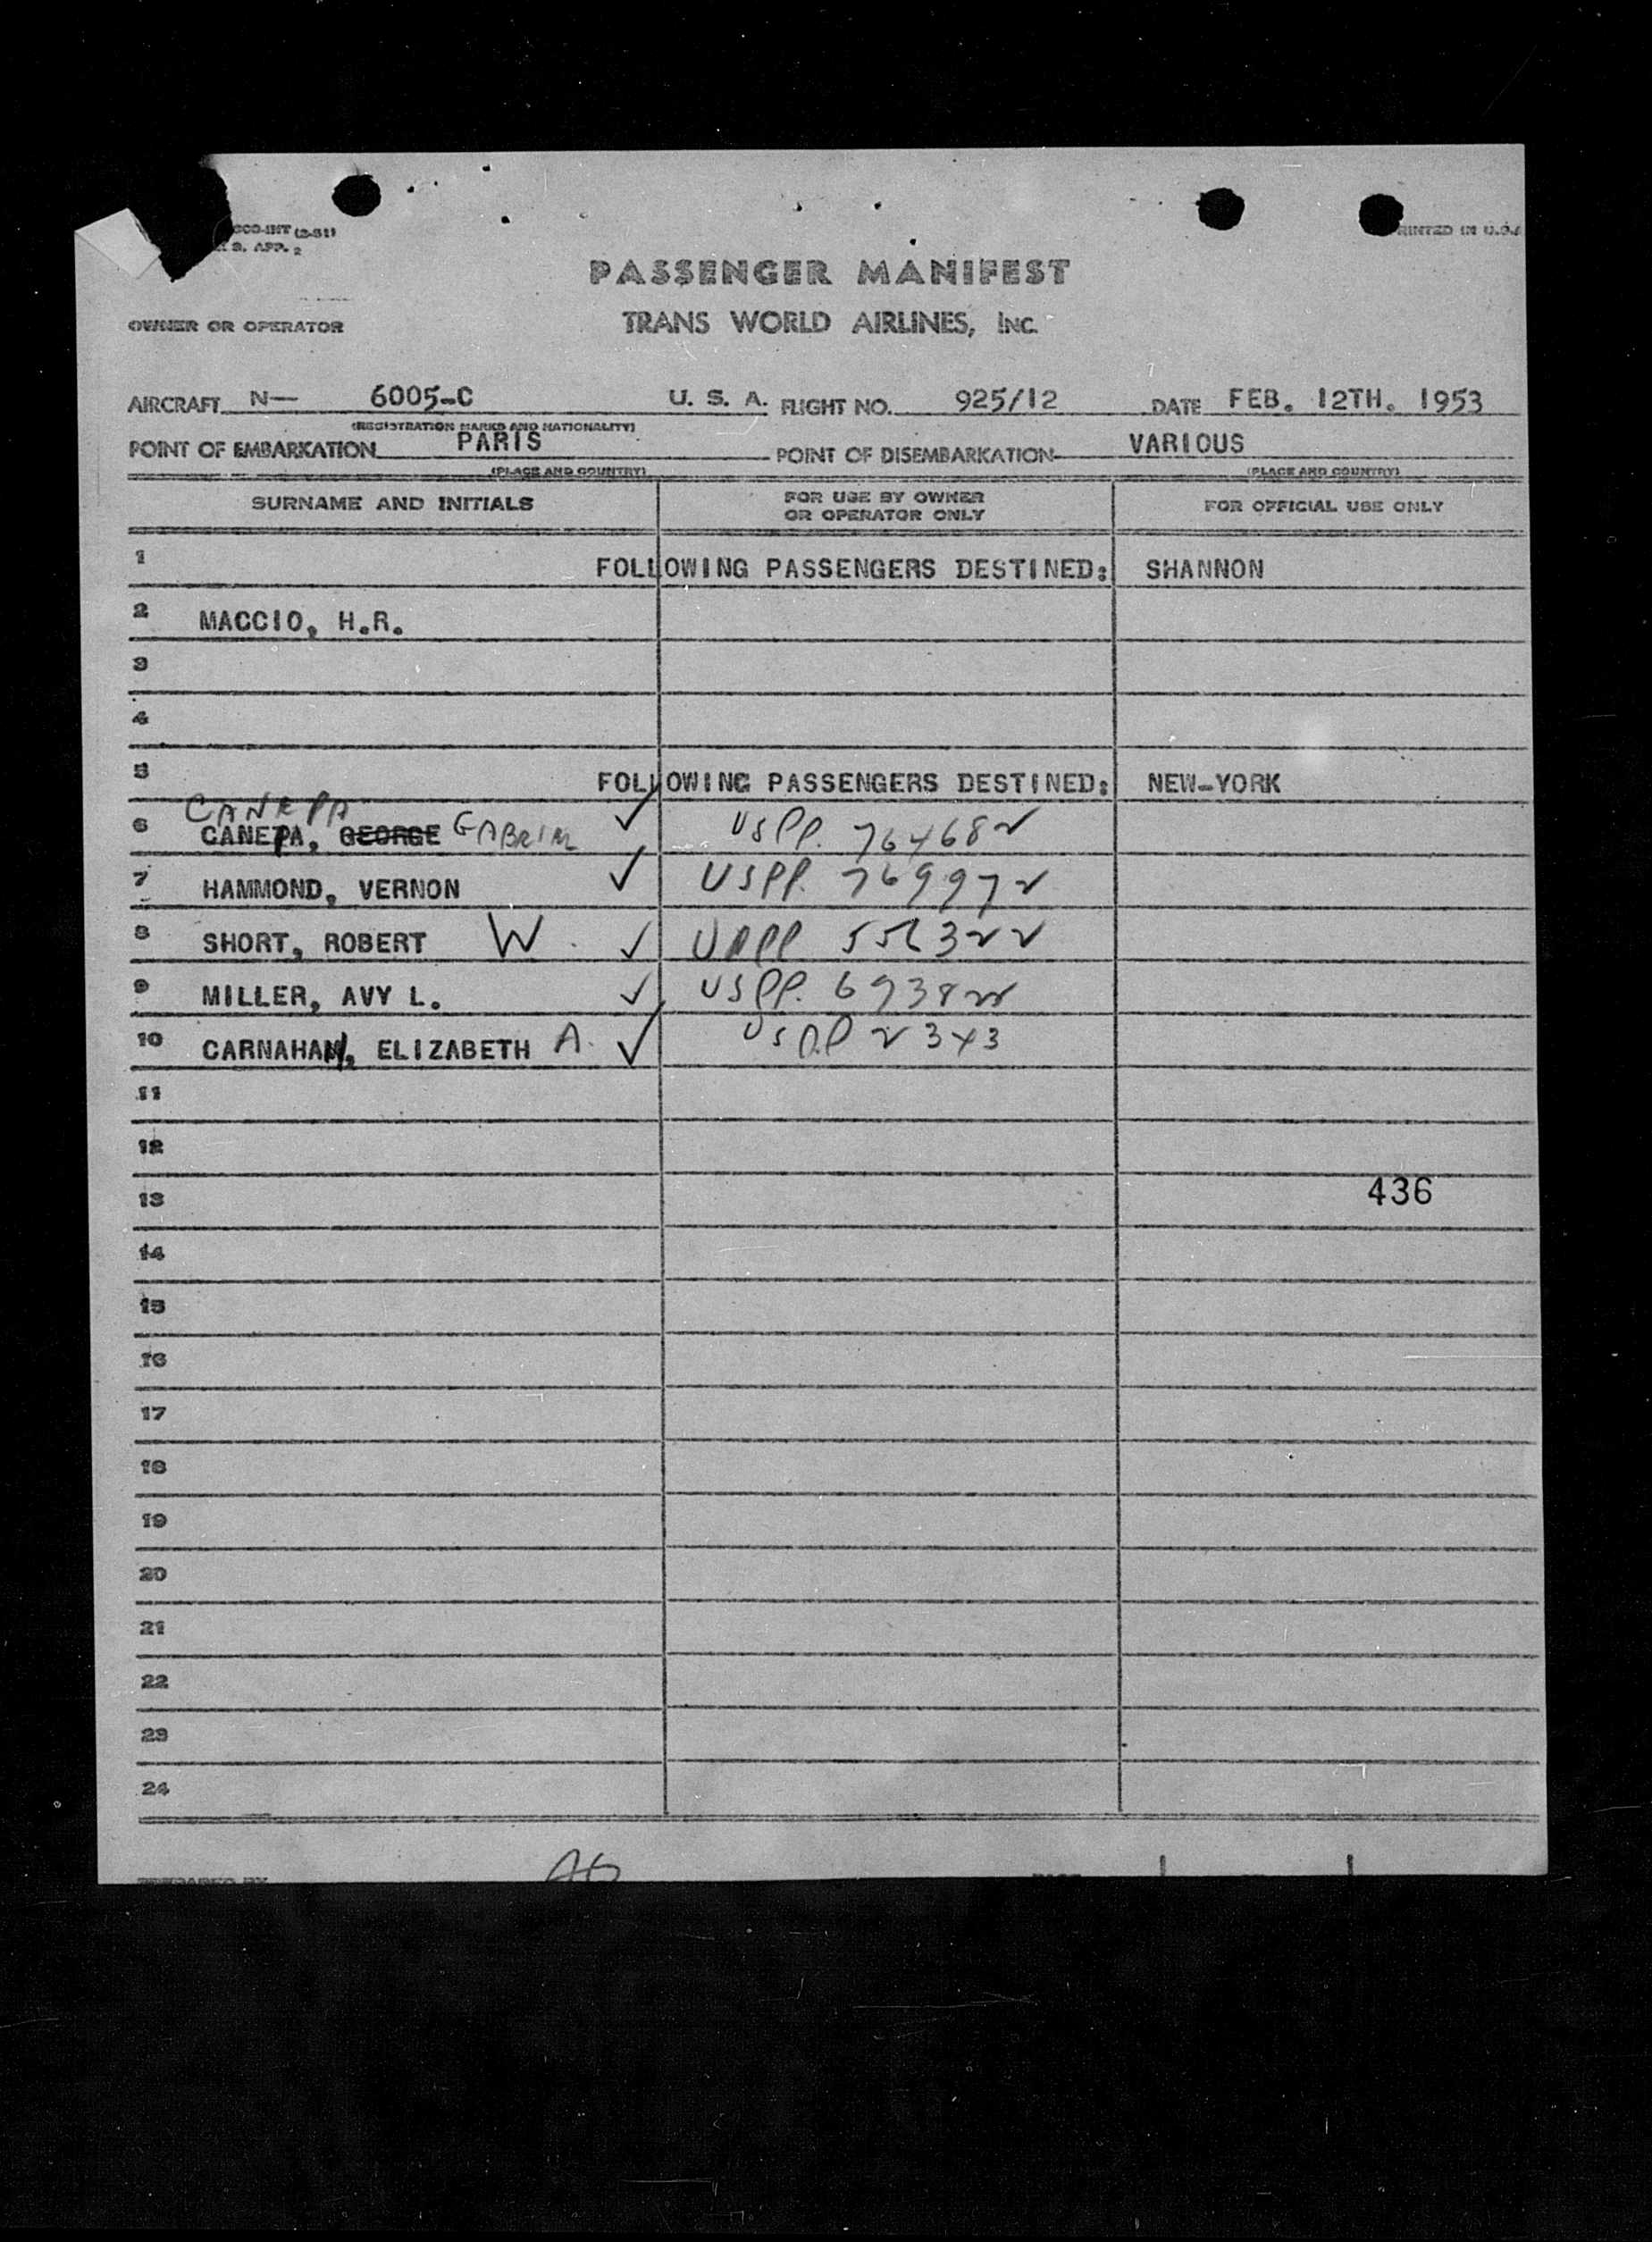 000-INT (2-51)
S. APP. 2
PRINTED IN U.S.A
PASSENGER MANIFEST
OWNER OR OPERATOR TRANS WORLD AIRLINES, INC.
AIRCRAFT N— 6005-C U. S. A. FLIGHT NO. 925/12 DATE FEB. 12TH. 1953
(REGISTRATION MARKS AND NATIONALITY)
POINT OF EMBARKATION PARIS POINT OF DISEMBARKATION VARIOUS
(PLACE AND COUNTRY) (PLACE AND COUNTRY)
SURNAME AND INITIALS FOR USE BY OWNER OR OPERATOR ONLY FOR OFFICIAL USE ONLY
1 FOLLOWING PASSENGERS DESTINED: SHANNON
2 MACCIO, H.R.
3
4
5 FOLLOWING PASSENGERS DESTINED: NEW-YORK
CANEPA
6 CANEPA, GEORGE GABRIEL ✓ USPP. 764682
7 HAMMOND, VERNON ✓ USPP. 769972
8 SHORT, ROBERT W. ✓ USPP 556322
9 MILLER, AVY L. ✓ USPP. 693822
10 CARNAHAN, ELIZABETH A. ✓ USPP 2343
11
12
13 436
14
15
16
17
18
19
20
21
22
23
24
PREPARED BY AG PAGE 1 OF 1